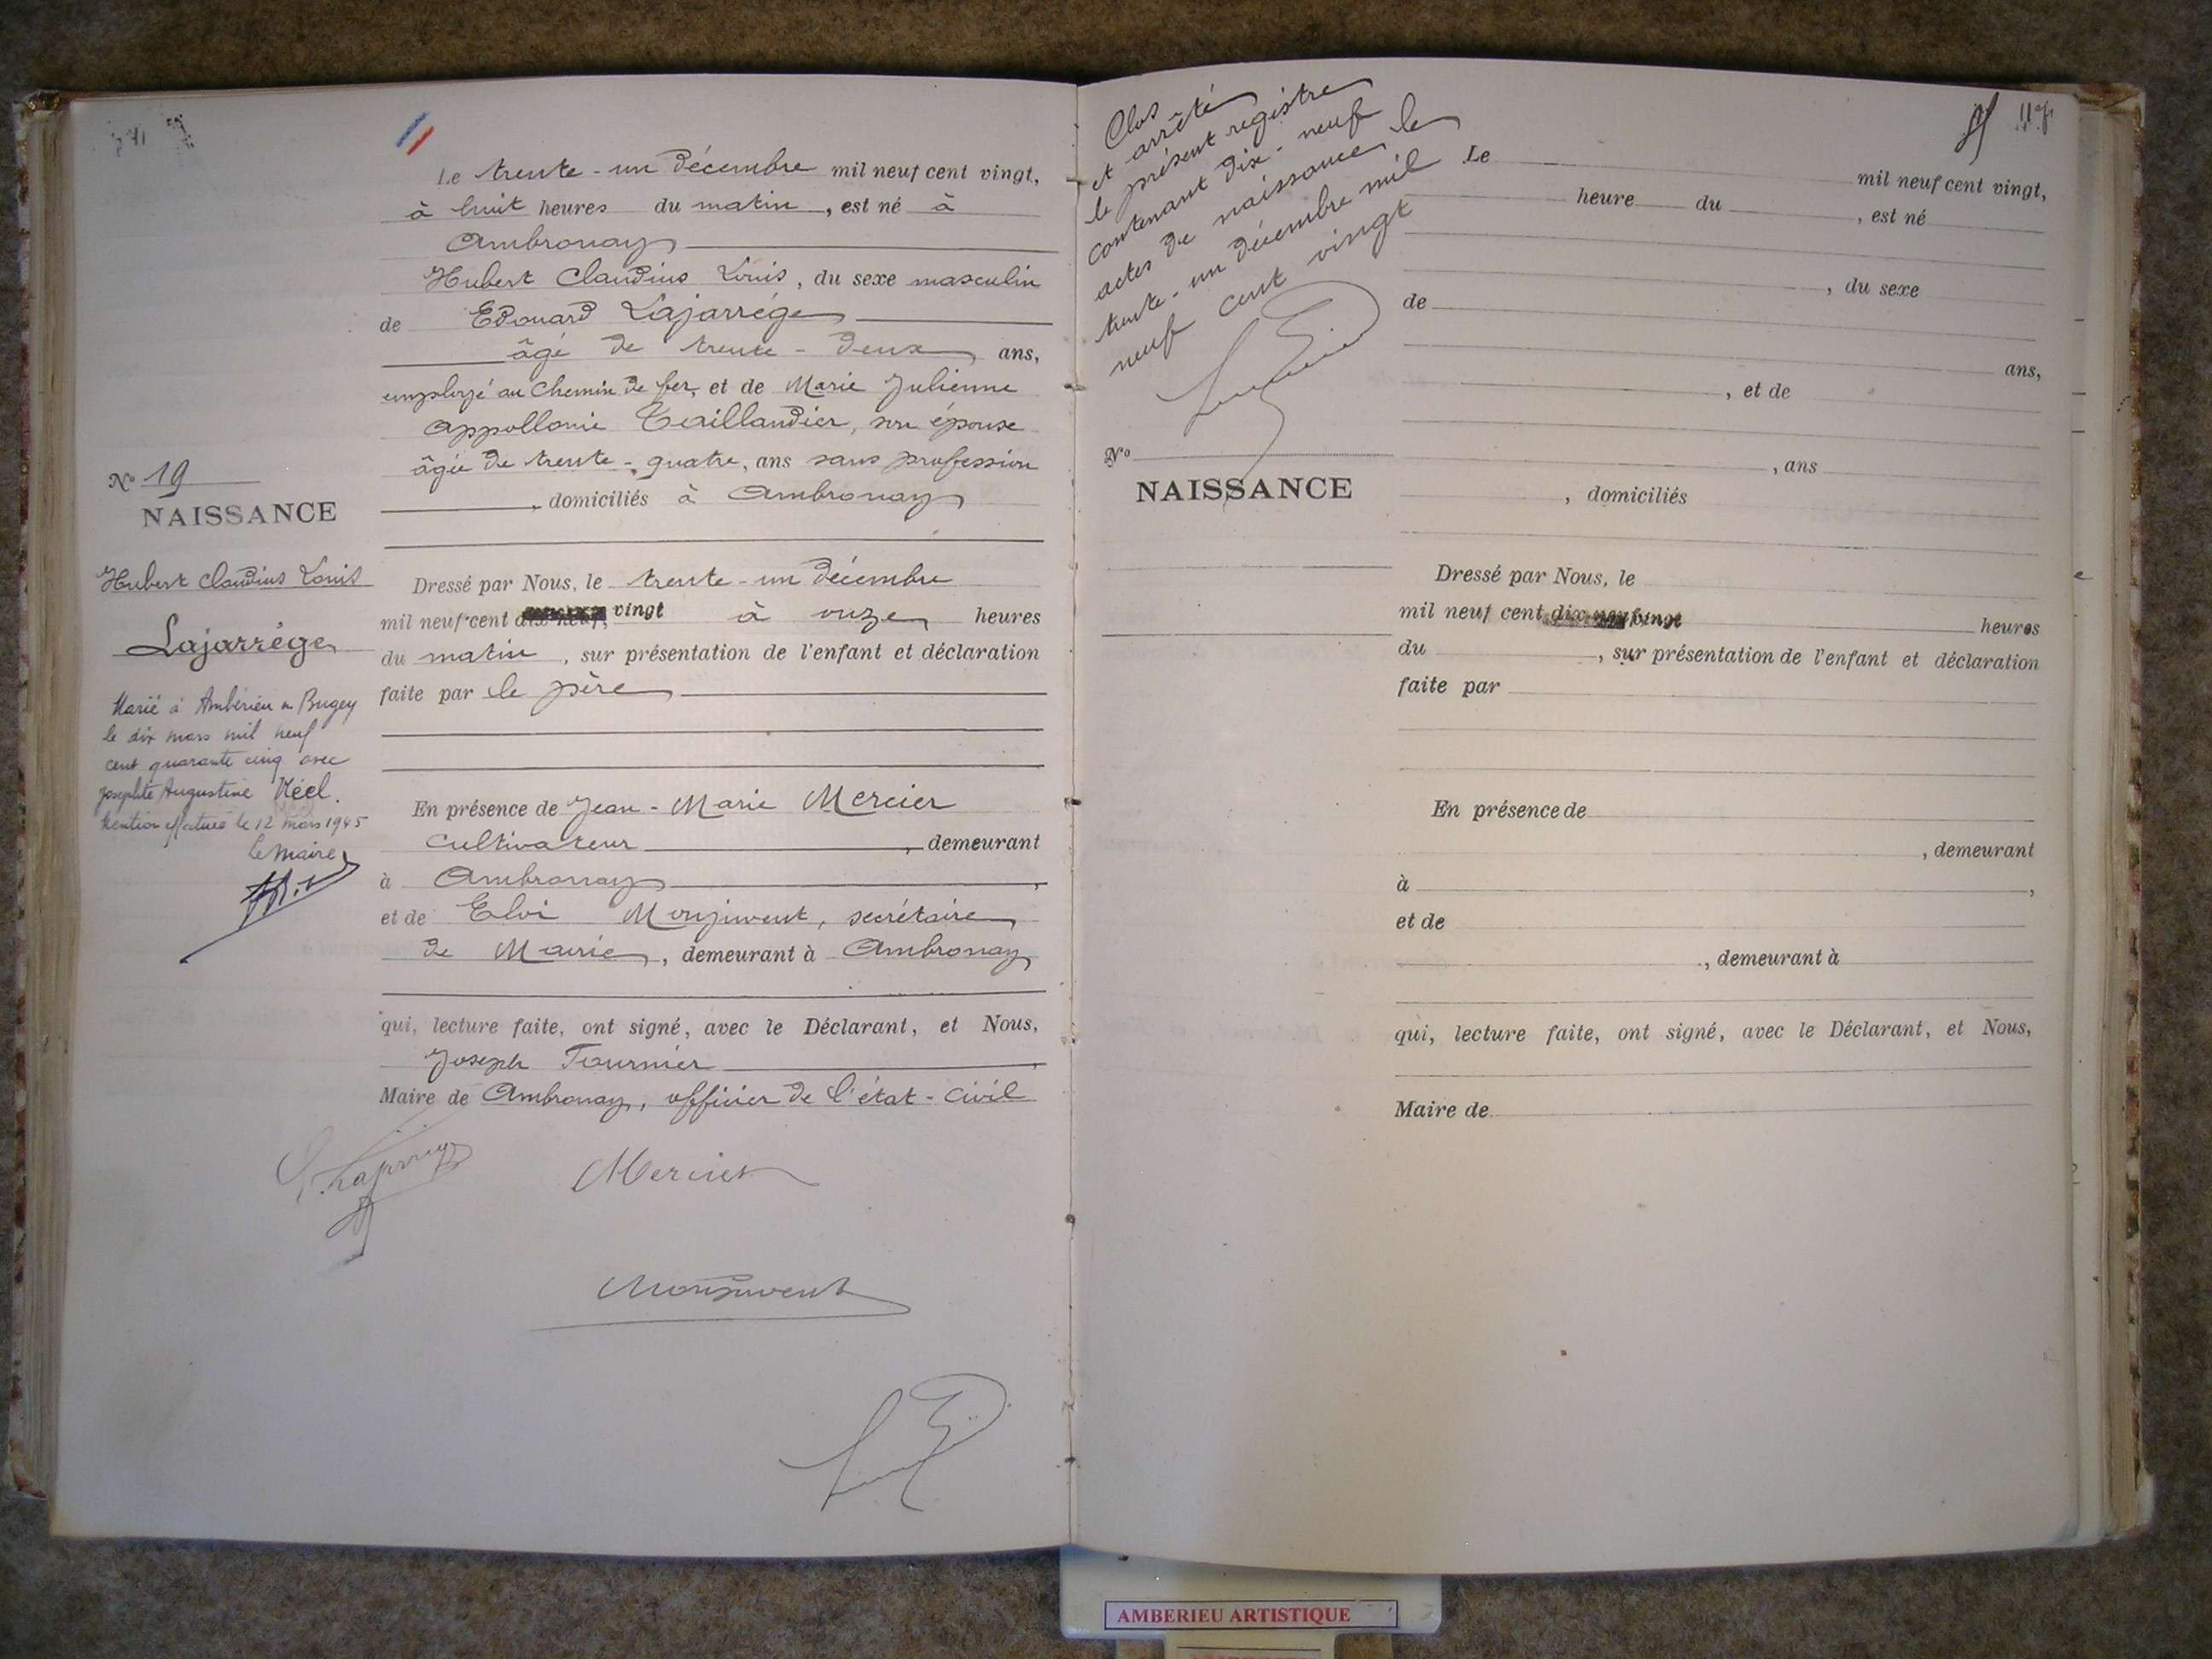 Le trente-un Décembre mil neuf cent vingt,
à huit heures du matin, est né à
Ambronay
Hubert Claudius Louis, du sexe masculin
de Edouard Lajarrége
âgé de trente-deux ans,
employé au Chemin de fer, et de Marie Julienne
Appollonie Taillandier, son épouse
âgée de trente-quatre, ans sans profession
, domiciliés à Ambronay
Dressé par Nous, le trente-un Décembre
mil neuf cent vingt à onze heures
du matin, sur présentation de l'enfant et déclaration
faite par le père
En présence de Jean-Marie Mercier
Cultivateur, demeurant
à Ambronay,
et de Eloi Monjuvent, secrétaire
de Mairie, demeurant à Ambronay
qui, lecture faite, ont signé, avec le Déclarant, et Nous,
Joseph Tournier
Maire de Ambronay, officier de l'état-civil
Mercier
Monjuvent
No 19
NAISSANCE
Hubert Claudius Louis
Lajarrége
Marié à Ambérieu en Bugey
le dix mars mil neuf
cent quarante cinq avec
Josephte Augustine Réel.
Mention effectuée le 12 mars 1945
Le Maire
Clos
et arrêté
le présent registre
contenant dix-neuf
actes de naissance le
trente-un décembre mil
neuf cent vingt
No
NAISSANCE
Le mil neuf cent vingt,
heure du , est né
, du sexe
de
ans,
, et de
, ans
, domiciliés
Dressé par Nous, le
mil neuf cent vingt heures
du , sur présentation de l'enfant et déclaration
faite par
En présence de
, demeurant
à ,
et de
, demeurant à
qui, lecture faite, ont signé, avec le Déclarant, et Nous,
Maire de
AMBERIEU ARTISTIQUE